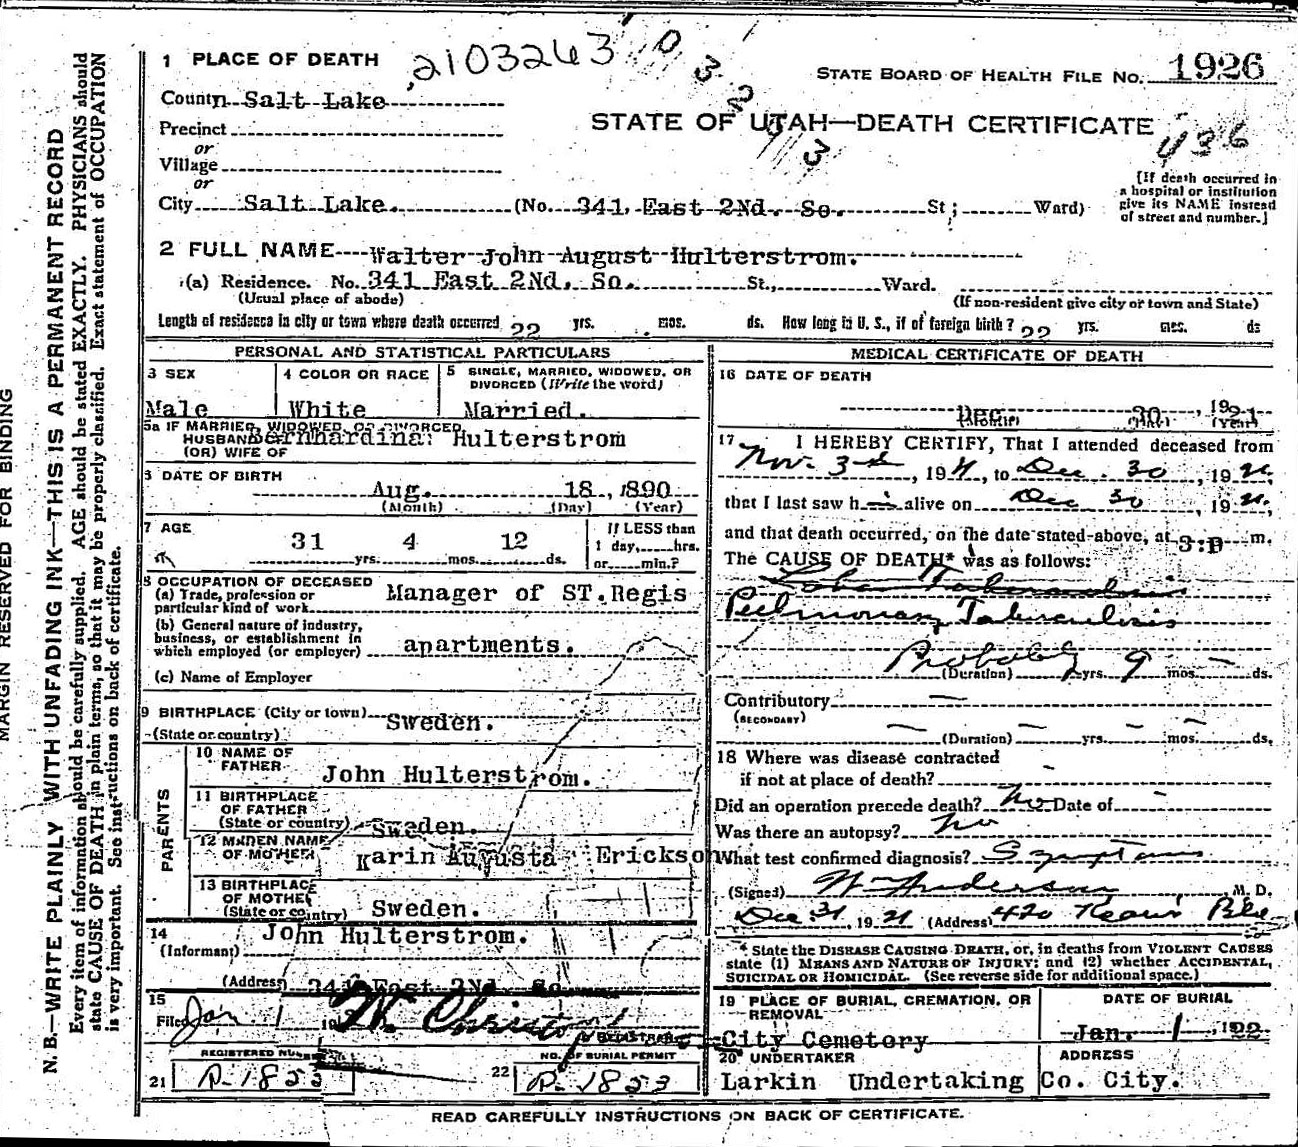 MARGIN RESERVED FOR BINDING
N. B.—WRITE PLAINLY WITH UNFADING INK—THIS IS A PERMANENT RECORD
Every item of information should be carefully supplied. AGE should be stated EXACTLY. PHYSICIANS should
state CAUSE OF DEATH in plain terms, so that it may be properly classified. Exact statement of OCCUPATION
is very important. See instructions on back of certificate.
1 PLACE OF DEATH
2103263
0323
STATE BOARD OF HEALTH FILE NO. 1926
County Salt Lake
STATE OF UTAH—DEATH CERTIFICATE
436
Precinct
or
Village
or
City Salt Lake. (No. 341, East 2Nd. So. St; Ward)
[If death occurred in
a hospital or institution
give its NAME instead
of street and number.]
2 FULL NAME Walter John August Hulterstrom.
(a) Residence. No. 341 East 2Nd. So. St., Ward.
(Usual place of abode) (If non-resident give city or town and State)
Length of residence in city or town where death occurred 22 yrs. mos. ds. How long in U. S., if of foreign birth? 22 yrs. mos. ds
PERSONAL AND STATISTICAL PARTICULARS
3 SEX 4 COLOR OR RACE 5 SINGLE, MARRIED, WIDOWED, OR
DIVORCED (Write the word)
Male White Married.
5a IF MARRIED, WIDOWED, OR DIVORCED
HUSBAND Bernhardina Hulterstrom
(OR) WIFE OF
6 DATE OF BIRTH
Aug. 18, 1890
(Month) (Day) (Year)
7 AGE
31 yrs. 4 mos. 12 ds.
If LESS than
1 day, hrs.
or min.?
8 OCCUPATION OF DECEASED
(a) Trade, profession or
particular kind of work Manager of ST.Regis
(b) General nature of industry,
business, or establishment in
which employed (or employer) apartments.
(c) Name of Employer
9 BIRTHPLACE (City or town) Sweden.
(State or country)
PARENTS
10 NAME OF
FATHER John Hulterstrom.
11 BIRTHPLACE
OF FATHER
(State or country) Sweden.
12 MAIDEN NAME
OF MOTHER Karin Augusta Erickson
13 BIRTHPLACE
OF MOTHER
(State or country) Sweden.
14
(Informant) John Hulterstrom.
(Address 341 East 2Nd So
15
Filed Jan 1 19
REGISTRAR
REGISTERED NUMBER
21 P-1853
NO. OF BURIAL PERMIT
22 P-1853
MEDICAL CERTIFICATE OF DEATH
16 DATE OF DEATH
Dec. 30, 1921
(Month) (Day) (Year)
17 I HEREBY CERTIFY, That I attended deceased from
Nov. 3rd, 1921, to Dec. 30, 1921,
that I last saw him alive on Dec 30, 1921,
and that death occurred, on the date stated above, at 3:P m.
The CAUSE OF DEATH* was as follows:
Pulmonary Tuberculosis
Probably (Duration) yrs. 9 mos. — ds.
Contributory —
(SECONDARY)
— (Duration) — yrs. — mos. — ds.
18 Where was disease contracted
if not at place of death? -
Did an operation precede death? No Date of -
Was there an autopsy? No
What test confirmed diagnosis? Symptoms
(Signed) W Anderson, M. D.
Dec 31, 1921 (Address) 420 Kearns Bldg
* State the DISEASE CAUSING DEATH, or, in deaths from VIOLENT CAUSES
state (1) MEANS AND NATURE OF INJURY; and (2) whether ACCIDENTAL,
SUICIDAL OR HOMICIDAL. (See reverse side for additional space.)
19 PLACE OF BURIAL, CREMATION, OR
REMOVAL
City Cemetory
DATE OF BURIAL
Jan. 1, 1922
20 UNDERTAKER
Larkin Undertaking
ADDRESS
Co. City.
READ CAREFULLY INSTRUCTIONS ON BACK OF CERTIFICATE.